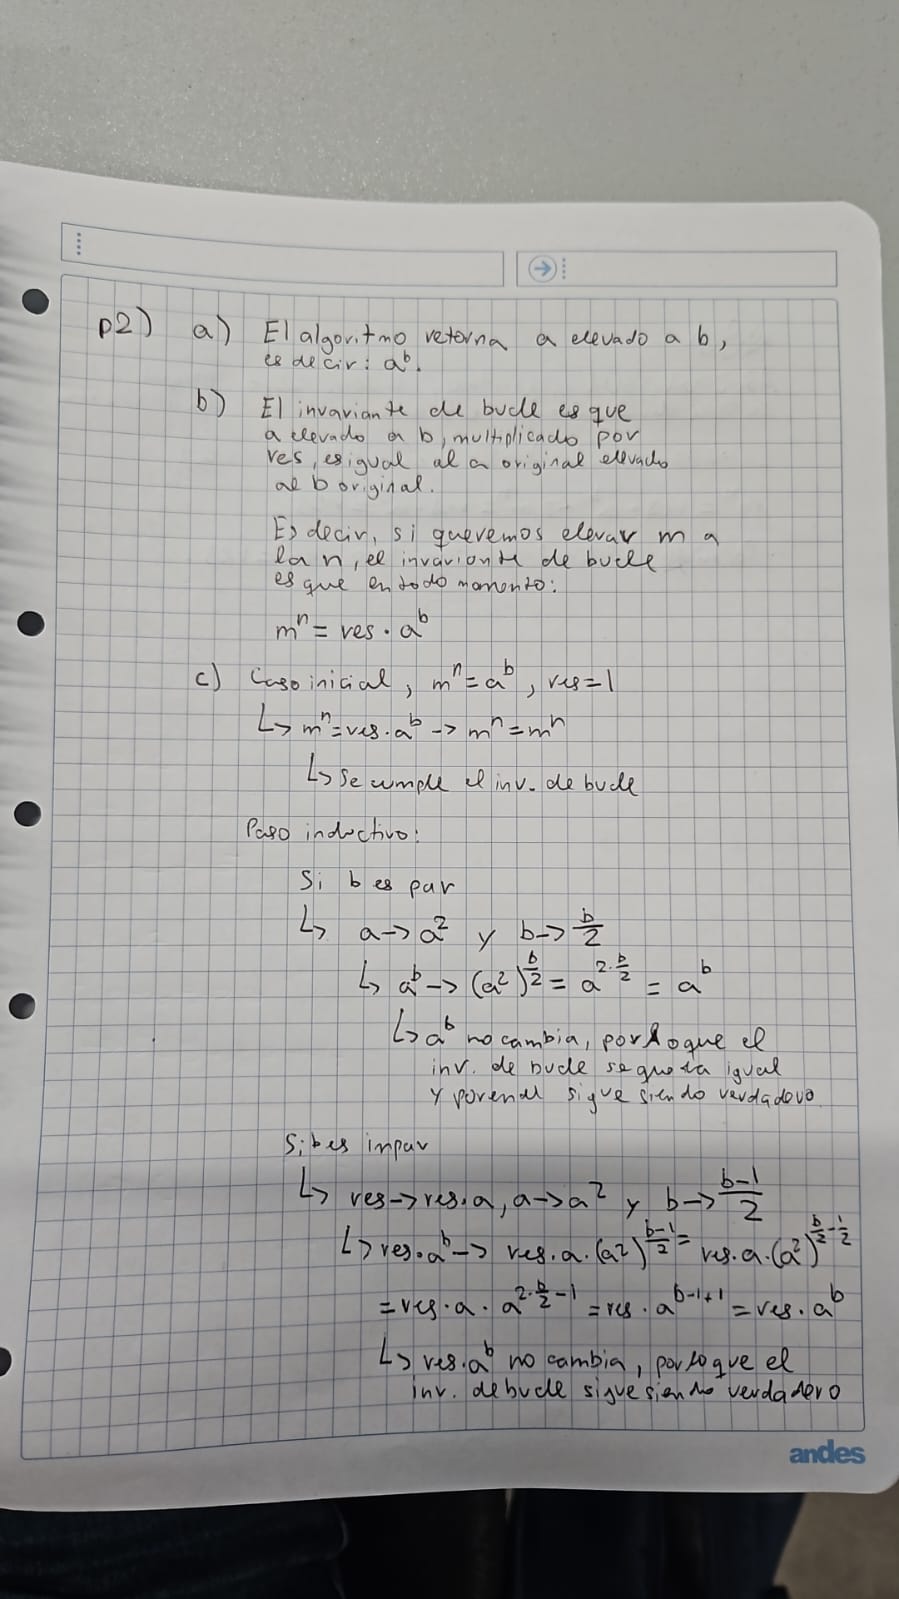 p2) a) El algoritmo retorna a elevado a b,
es decir: a^b.
b) El invariante de bucle es que
a elevado a b, multiplicado por
res, es igual al a original elevado
al b original.
Es decir, si queremos elevar m a
la n, el invariante de bucle
es que en todo momento:
m^n = res · a^b
c) Caso inicial, m^n = a^b, res=1
↳ m^n = res · a^b -> m^n = m^n
↳ Se cumple el inv. de bucle
Paso inductivo:
Si b es par
↳ a -> a^2 y b -> b/2
↳ a^b -> (a^2)^(b/2) = a^(2·b/2) = a^b
↳ a^b no cambia, por lo que el
inv. de bucle se queda igual
y por ende sigue siendo verdadero
Si b es impar
↳ res -> res·a, a -> a^2 y b -> (b-1)/2
↳ res·a^b -> res·a·(a^2)^((b-1)/2) = res·a·(a^2)^(b/2 - 1/2)
= res·a·a^(2·b/2 - 1) = res·a^(b-1+1) = res·a^b
↳ res·a^b no cambia, por lo que el
inv. de bucle sigue siendo verdadero
andes